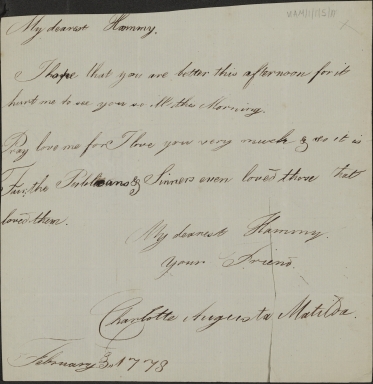 My dearest Hammy.
I hope that you are better this afternoon for it
hurt me to see you so ill this Morning.
Pray love me for I love you very much & so it is
Fair, the Publicans & Sinners even loved those that
loves them.
My dearest Hammy.
your Friend.
Charlotte Augusta Matilda.
February 3. 1778